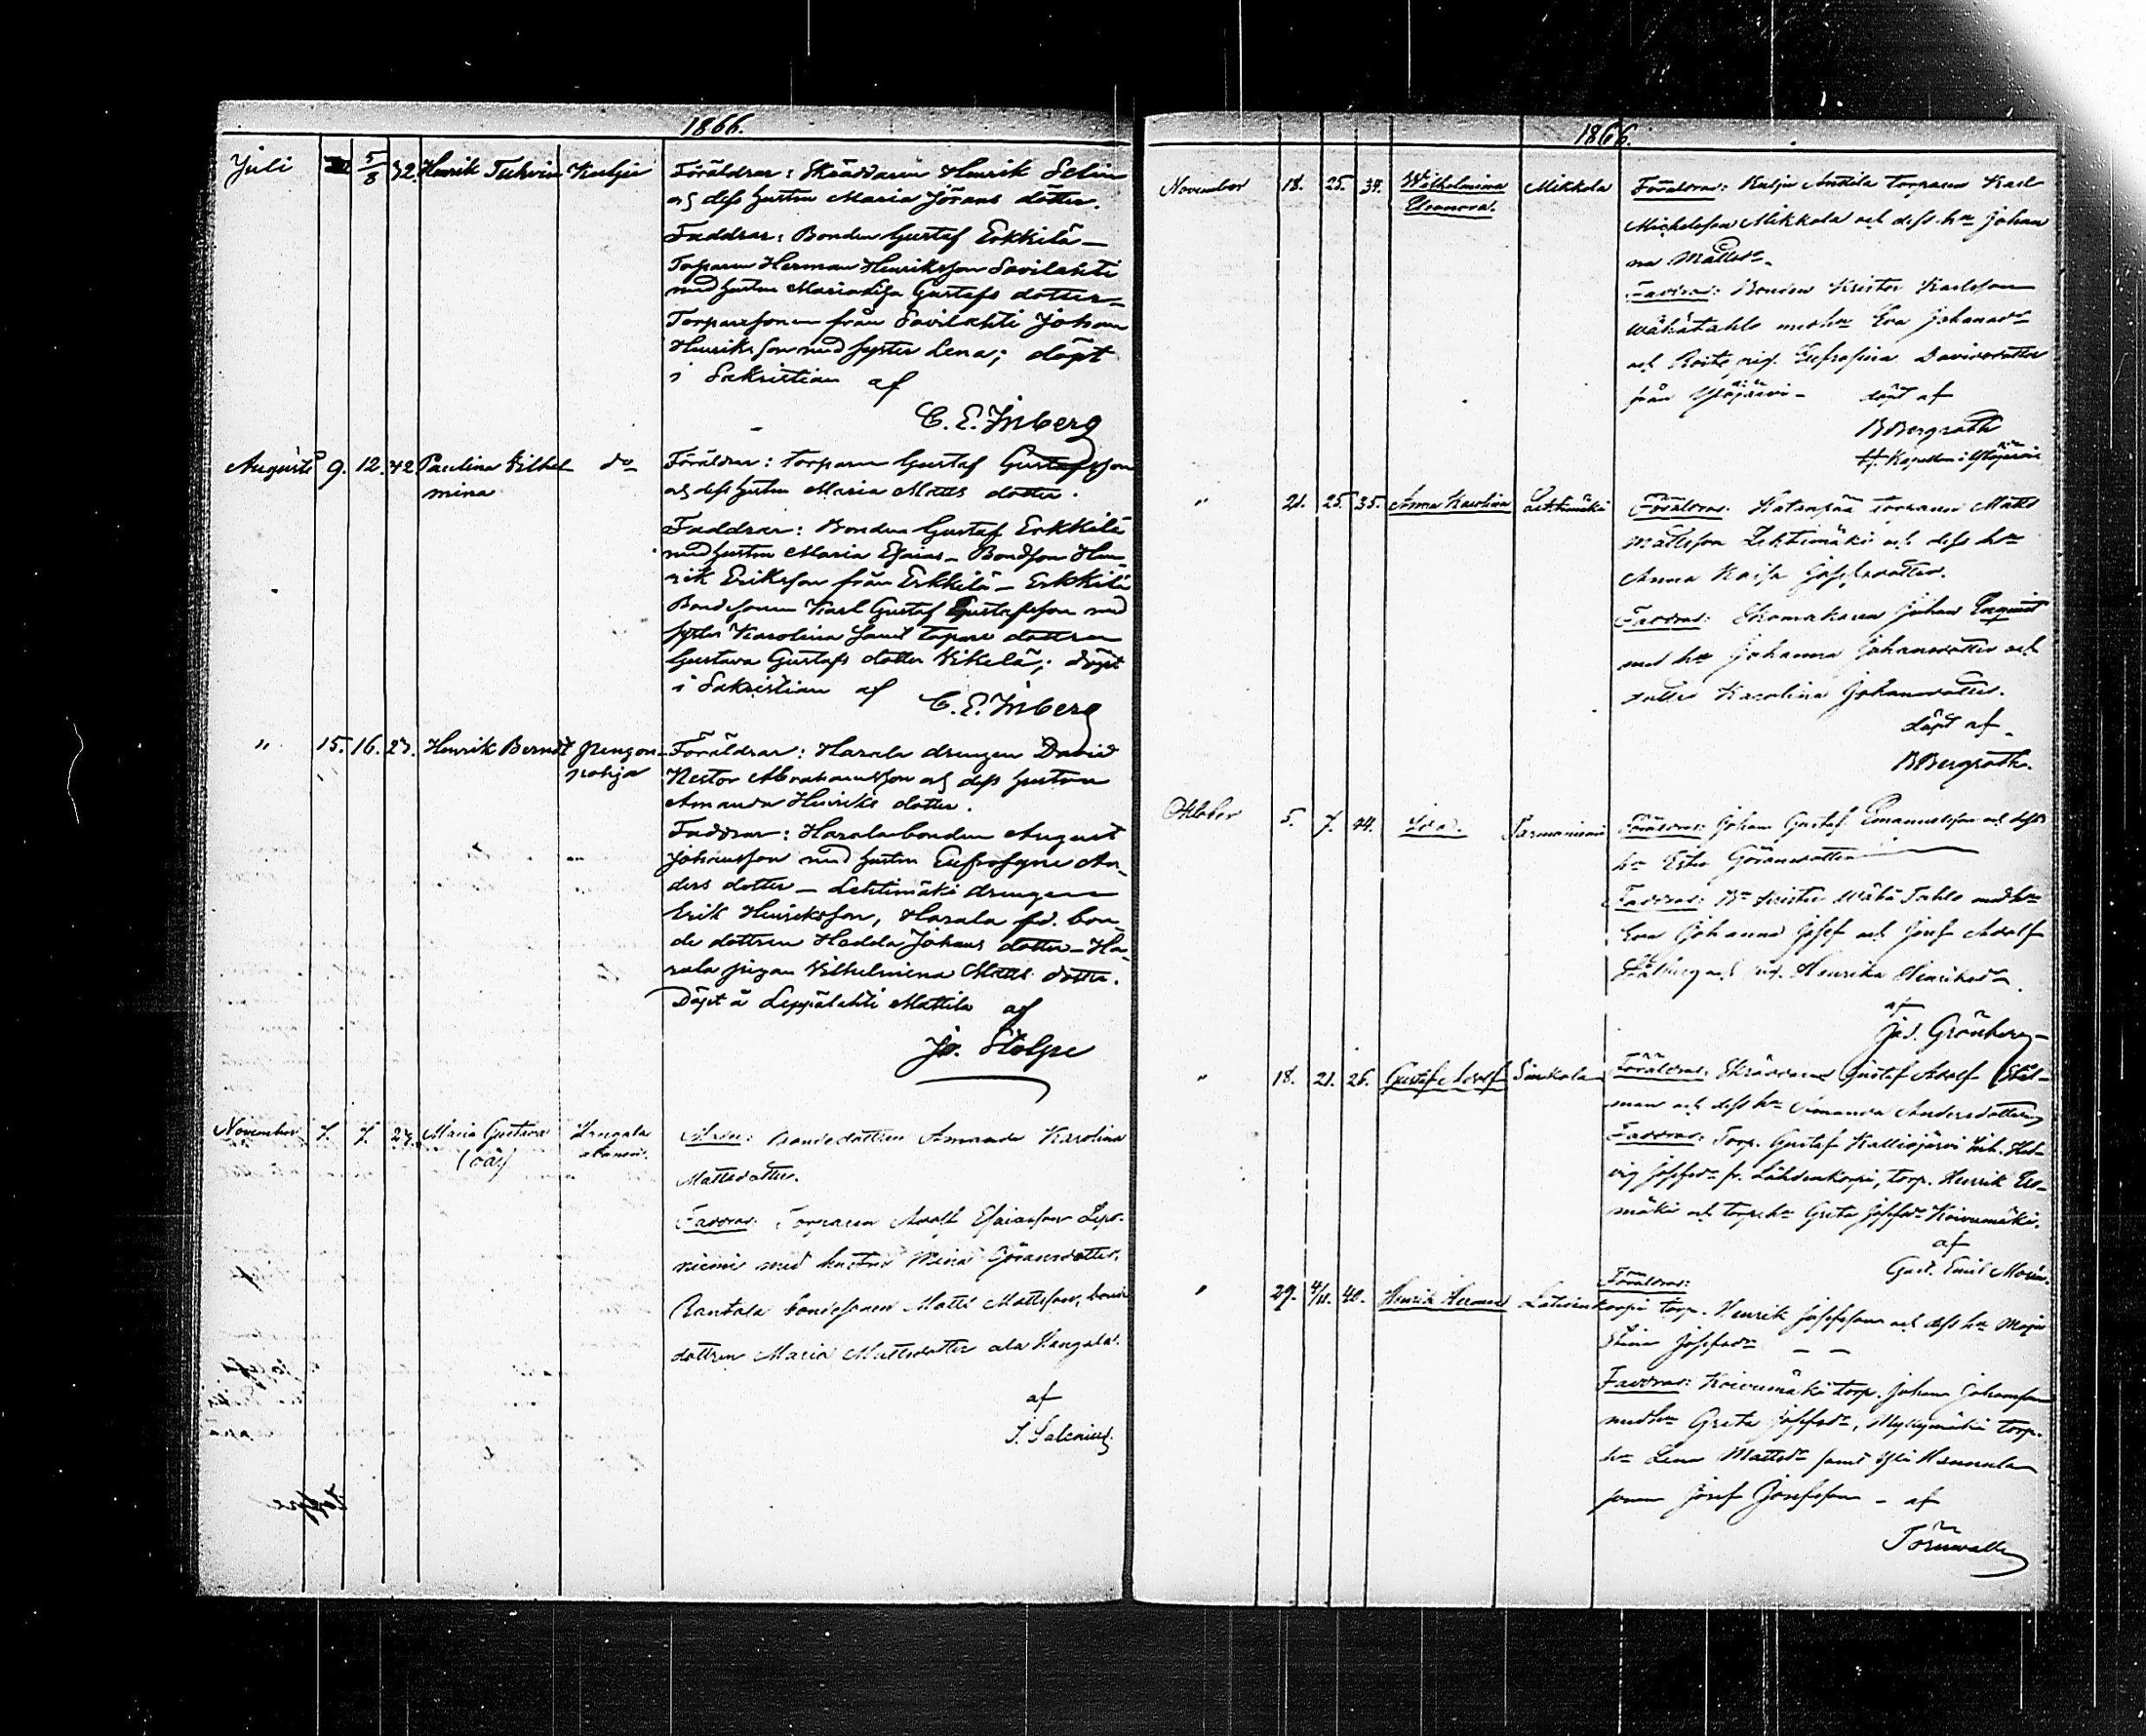 1866.
Juli 5/8 32. Henrik Kulju Föräldrar: Skräddaren Henrik Selin
och dess hustru Maria Jörans dotter.
Faddrar: Bonden Gustaf Erkkilä –
Torparen Herman Henriksson Savilahti
med hustru Maria Lisa Gustafs dotter –
Torparesonen från Savilahti Johan
Henriksson med syster Lena; döpt
i Sakristian af
C. E. Inberg
Augusti 9. 12. 42. Paulina Vilhel- do Föräldrar: torparen Gustaf Gustafsson
mina och dess hustru Maria Matts dotter.
Faddrar: Bonden Gustaf Erkkilä
med hustru Maria Esaias – Bondson Hen-
rik Eriksson från Erkkilä – Erkkilä
Bondesonen Karl Gustaf Gustafsson med
syster Karolina samt torpare dottren
Gustava Gustafs dotter Vikelä; döpt
i Sakristian af
C. E. Inberg
" 15. 16. 27. Henrik Berndt Pengon- Föräldrar: Harala drengen David
pohja Nestor Abrahamsson och dess hustru
Amanda Henriks dotter.
Faddrar: Harala bonden August
Johansson med hustru Eufrosyne An-
ders dotter – Lehtimäki drengen
Erik Henriksson, Harala fd. bon-
de dottren Hedda Johans dotter – Ha-
rala pigan Vilhelmina Matts dotter.
Döpt å Leppälahti Mattila af
Jo. Stolpe
November 7. 7. 27. Maria Gustava Hengala
(oä) Moder: bondedottren Amanda Karolina
Mattsdotter.
Faddrar: Torparen Adolf Esaiasson Lepo-
niemi med hustru Mina Göransdotter,
Rantala bondesonen Matts Mattsson, bonde
dottren Maria Mattsdotter ala Hengala.
af
1866.
November 18. 25. 34. Wilhelmina Mikkola Föräldrar: Kulju Anttila torparen Karl
Eleonora. Michelsson Mikkola och dess hu Johan
na Mattsdr.
Faddrar: Bonden Krister Karlsson
Wähätahlo med hu Eva Johansdr
och pig. Eufrosina Davidsdotter
från Ylöjärvi – döpt af
B Bergroth
tf. Kapellan i Ylöjärvi
" 21. 25. 35. Anna Karolina Lehtimäki Föräldrar: Hatanpää torparen Matts
Mattsson Lehtimäki och dess hu
Anna Kaisa Josefsdotter.
Faddrar: Skomakaren Johan
med hu Johanna Johansdotter och
dotter Karolina Johansdotter.
döpt af
B Bergroth.
Oktober 5. 7. 44. Föräldrar: Johan Gustaf Emanuelsson och dess
hu Ester Göransdotter
Faddrar: Bn Krister Wähä Tahlo med hu
Eva Johanna Josef och Josef Adolf
och pig. Henrika Henriksdr.
af
Jos. Grönberg
" 18. 21. 26. Gustaf Adolf Sinkola Föräldrar: Skräddaren Gustaf Adolf
man och dess hu Amanda Andersdotter
Faddrar: Torp. Gustaf Kalliojärvi Hed-
vig Josefsdr fr. Lähdenkorpi, torp. Henrik
mäki och torp. hu Greta Josefsdr Koivumäki.
af
Gust. Emil
" 29. 4/11. 40. Henrik Herman Föräldrar:
torp. Henrik Josefsson och dess hu Maja
Stina Josefsdr – –
Faddrar: Koivumäki torp. Johan Johansson
med hu Greta Josefsdr, Myllymäki torp.
hu Lena Mattsdr samt Yli Hannula
sonen Josef Josefsson – af
Törnwall